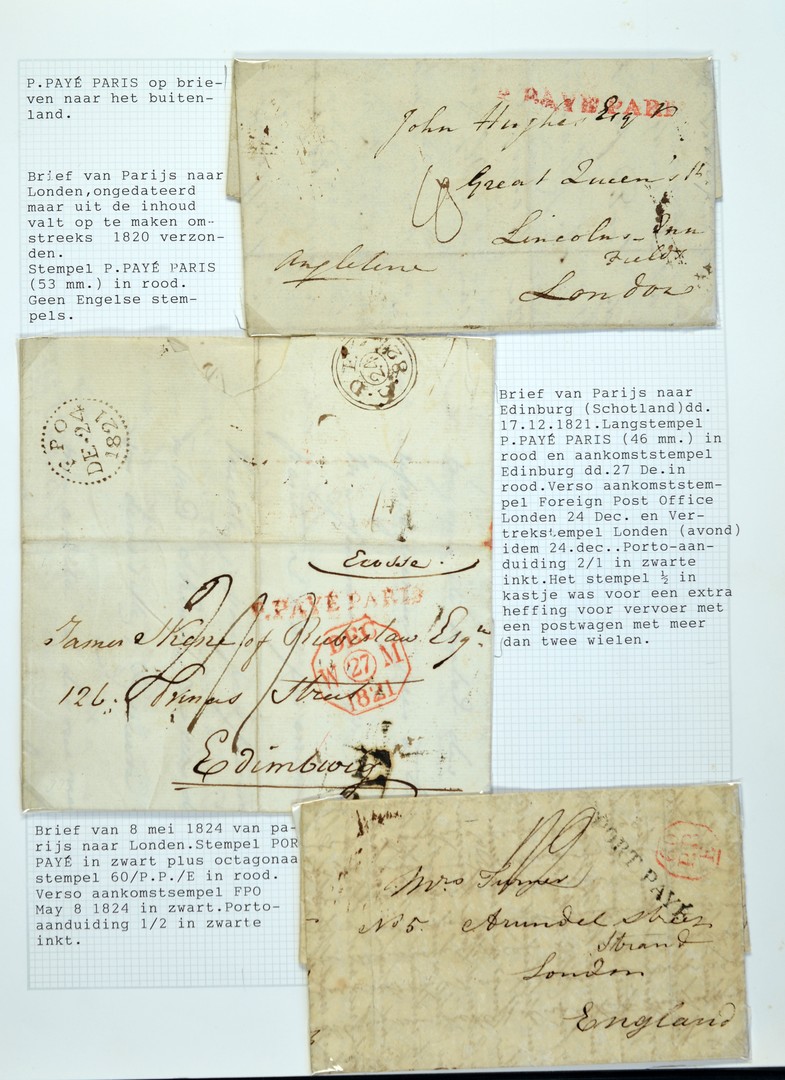 P.PAYÉ PARIS op brie-
ven naar het buiten-
land.
Brief van Parijs naar
Londen,ongedateerd
maar uit de inhoud
valt op te maken om-
streeks 1820 verzon-
den.
Stempel P.PAYÉ PARIS
(53 mm.) in rood.
Geen Engelse stem-
pels.
P.PAYE PARIS
John Hughes Esqr
Great Queen's St
Lincolns-Inn
Fields
London
Angleterre
FPO
DE·24
1821
Brief van Parijs naar
Edinburg (Schotland)dd.
17.12.1821.Langstempel
P.PAYÉ PARIS (46 mm.) in
rood en aankomststempel
Edinburg dd.27 De.in
rood.Verso aankomststem-
pel Foreign Post Office
Londen 24 Dec. en Ver-
trekstempel Londen (avond)
idem 24.dec..Porto-aan-
duiding 2/1 in zwarte
inkt.Het stempel ½ in
kastje was voor een extra
heffing voor vervoer met
een postwagen met meer
dan twee wielen.
Ecosse.
P.PAYÉ PARIS
James Skene of Rubislaw Esqre
126. Princes Street
Edimburg
DEC
W 27 M
1821
Brief van 8 mei 1824 van pa-
rijs naar Londen.Stempel POR
PAYÉ in zwart plus octagonaa
stempel 60/P.P./E in rood.
Verso aankomstsempel FPO
May 8 1824 in zwart.Porto-
aanduiding 1/2 in zwarte
inkt.
PORT PAYÉ
Mrs Turner
No 5. Arundel Street
Strand
London
England